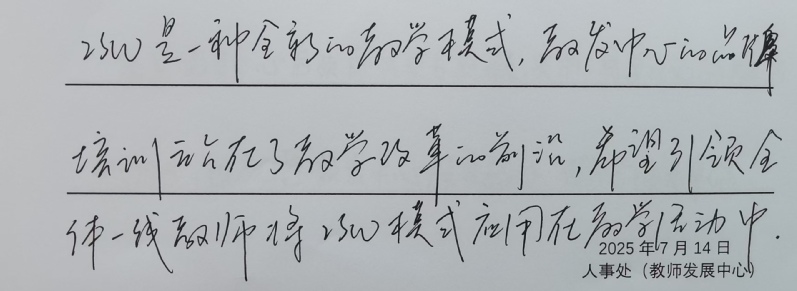 ISW是一种全新的教学模式，教发中心的品牌
培训站在了教学改革的前沿，希望引领全
体一线教师将ISW模式应用在教学活动中.
2025 年 7 月 14 日
人事处（教师发展中心）